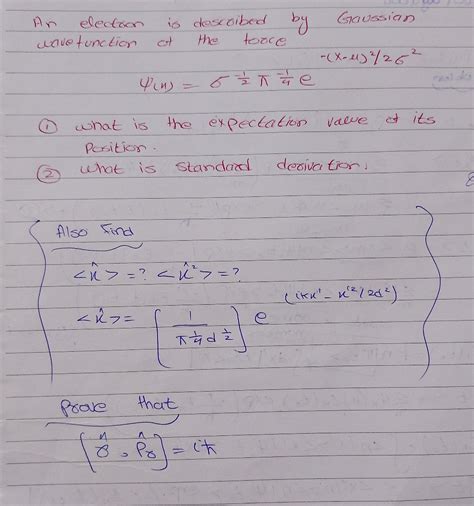 An electron is described by Gaussian
wavefunction of the force
Ψ(x) = σ^{-1/2} π^{-1/4} e^{-(x-μ)²/2σ²}
① what is the expectation value of its
Position.
② what is standard derivation.
Also Find
<x̂> = ? <x̂²> = ?
<x̂> = [1/(π^{1/4} d^{1/2})] e^{(ikx' - x'²/2d²)}
Prove that
[r̂, P̂r] = iħ